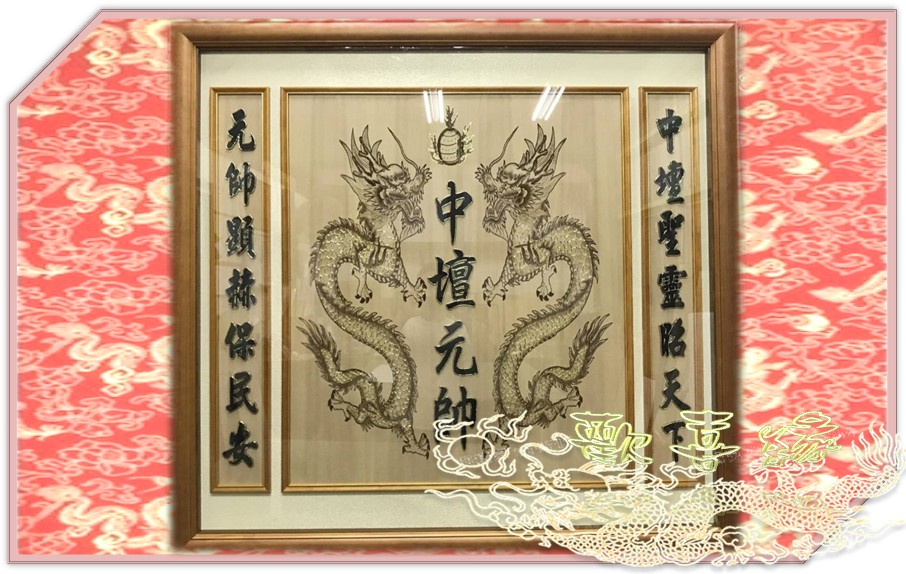 中壇元帥
中壇聖靈昭天下
元帥顯赫保民安
歡喜緣